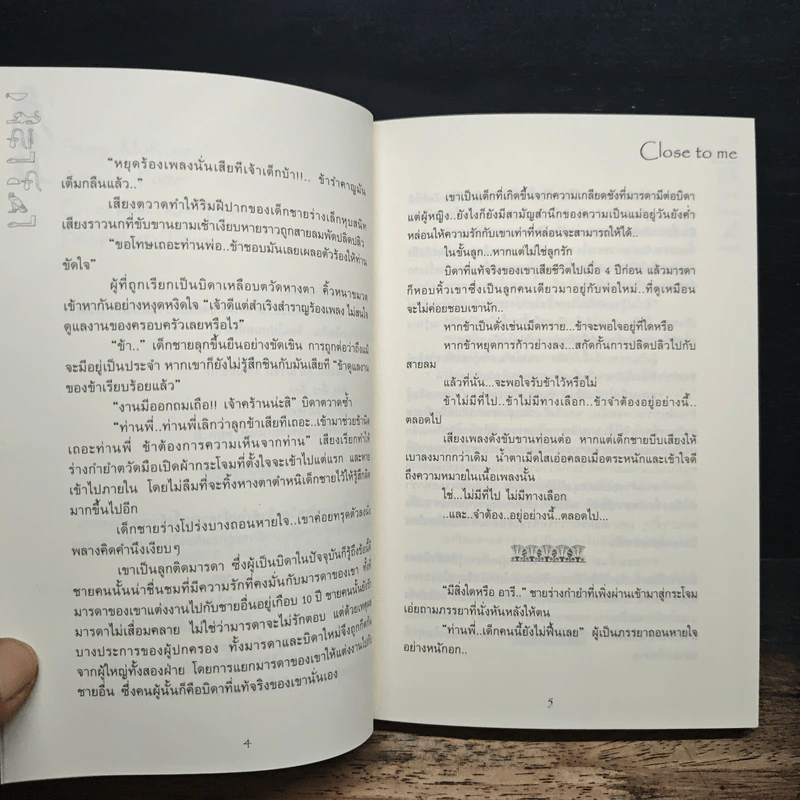 "หยุดร้องเพลงนั่นเสียทีเจ้าเด็กบ้า!!.. ข้ารำคาญมัน
เต็มกลืนแล้ว.."
เสียงตวาดทำให้ริมฝีปากของเด็กชายร่างเล็กหุบสนิท
เสียงราวนกที่ขับขานยามเช้าเงียบหายราวถูกสายลมพัดปลิดปลิว
"ขอโทษเถอะท่านพ่อ..ข้าชอบมันเลยเผลอตัวร้องให้ท่าน
ขัดใจ"
ผู้ที่ถูกเรียกเป็นบิดาเหลือบตวัดหางตา คิ้วหนาขมวด
เข้าหากันอย่างหงุดหงิดใจ "เจ้าดีแต่สำเริงสำราญร้องเพลง ไม่สนใจ
ดูแลงานของครอบครัวเลยหรือไร"
"ข้า.." เด็กชายลุกขึ้นยืนอย่างขัดเขิน การถูกต่อว่าถึงแม้
จะมีอยู่เป็นประจำ หากเขาก็ยังไม่รู้สึกชินกับมันเสียที "ข้าดูแลงาน
ของข้าเรียบร้อยแล้ว"
"งานมีออกถมเถือ!! เจ้าคร้านน่ะสิ" บิดาตวาดซ้ำ
"ท่านพี่..ท่านพี่เลิกว่าลูกข้าเสียทีเถอะ..เข้ามาช่วยข้านิด
เถอะท่านพี่ ข้าต้องการความเห็นจากท่าน" เสียงเรียกทำให้
ร่างกำยำตวัดมือเปิดผ้ากระโจมที่ตั้งใจจะเข้าไปแต่แรก และหาย
เข้าไปภายใน โดยไม่ลืมที่จะทิ้งหางตาตำหนิเด็กชายไว้ให้รู้สึกผิด
มากขึ้นไปอีก
เด็กชายร่างโปร่งบางถอนหายใจ..เขาค่อยทรุดตัวลงนั่ง
พลางคิดคำนึงเงียบๆ
เขาเป็นลูกติดมารดา ซึ่งผู้เป็นบิดาในปัจจุบันก็รู้ถึงข้อนี้ดี
ชายคนนั้นน่าชื่นชมที่มีความรักที่คงมั่นกับมารดาของเขา ทั้งที่
มารดาของเขาแต่งงานไปกับชายอื่นอยู่เกือบ 10 ปี ชายคนนั้นยังรัก
มารดาไม่เสื่อมคลาย ไม่ใช่ว่ามารดาจะไม่รักตอบ แต่ด้วยเหตุผล
บางประการของผู้ปกครอง ทั้งมารดาและบิดาใหม่จึงถูกกีดกัน
จากผู้ใหญ่ทั้งสองฝ่าย โดยการแยกมารดาของเขาให้แต่งงานไปกับ
ชายอื่น ซึ่งคนผู้นั้นก็คือบิดาที่แท้จริงของเขานั่นเอง
4
Close to me
เขาเป็นเด็กที่เกิดขึ้นจากความเกลียดชังที่มารดามีต่อบิดา
แต่ผู้หญิง..ยังไงก็ยังมีสามัญสำนึกของความเป็นแม่อยู่วันยังค่ำ
หล่อนให้ความรักกับเขาเท่าที่หล่อนจะสามารถให้ได้..
ในขั้นลูก...หากแต่ไม่ใช่ลูกรัก
บิดาที่แท้จริงของเขาเสียชีวิตไปเมื่อ 4 ปีก่อน แล้วมารดา
ก็หอบหิ้วเขาซึ่งเป็นลูกคนเดียวมาอยู่กับพ่อใหม่..ที่ดูเหมือน
จะไม่ค่อยชอบเขานัก..
หากข้าเป็นดั่งเช่นเม็ดทราย...ข้าจะพอใจอยู่ที่ใดหรือ
หากข้าหยุดการก้าวย่างลง...สกัดกั้นการปลิดปลิวไปกับ
สายลม
แล้วที่นั่น...จะพอใจรับข้าไว้หรือไม่
ข้าไม่มีที่ไป..ข้าไม่มีทางเลือก...ข้าจำต้องอยู่อย่างนี้..
ตลอดไป
เสียงเพลงดังขับขานท่อนต่อ หากแต่เด็กชายบีบเสียงให้
เบาลงมากกว่าเดิม น้ำตาเม็ดใสเอ่อคลอเมื่อตระหนักและเข้าใจดี
ถึงความหมายในเนื้อเพลงนั้น
ใช่...ไม่มีที่ไป ไม่มีทางเลือก
..และ..จำต้อง..อยู่อย่างนี้..ตลอดไป...
"มีสิ่งใดหรือ อารี.." ชายร่างกำยำที่เพิ่งผ่านเข้ามาสู่กระโจม
เอ่ยถามภรรยาที่นั่งหันหลังให้ตน
"ท่านพี่..เด็กคนนี้ยังไม่ฟื้นเลย" ผู้เป็นภรรยาถอนหายใจ
อย่างหนักอก..
5